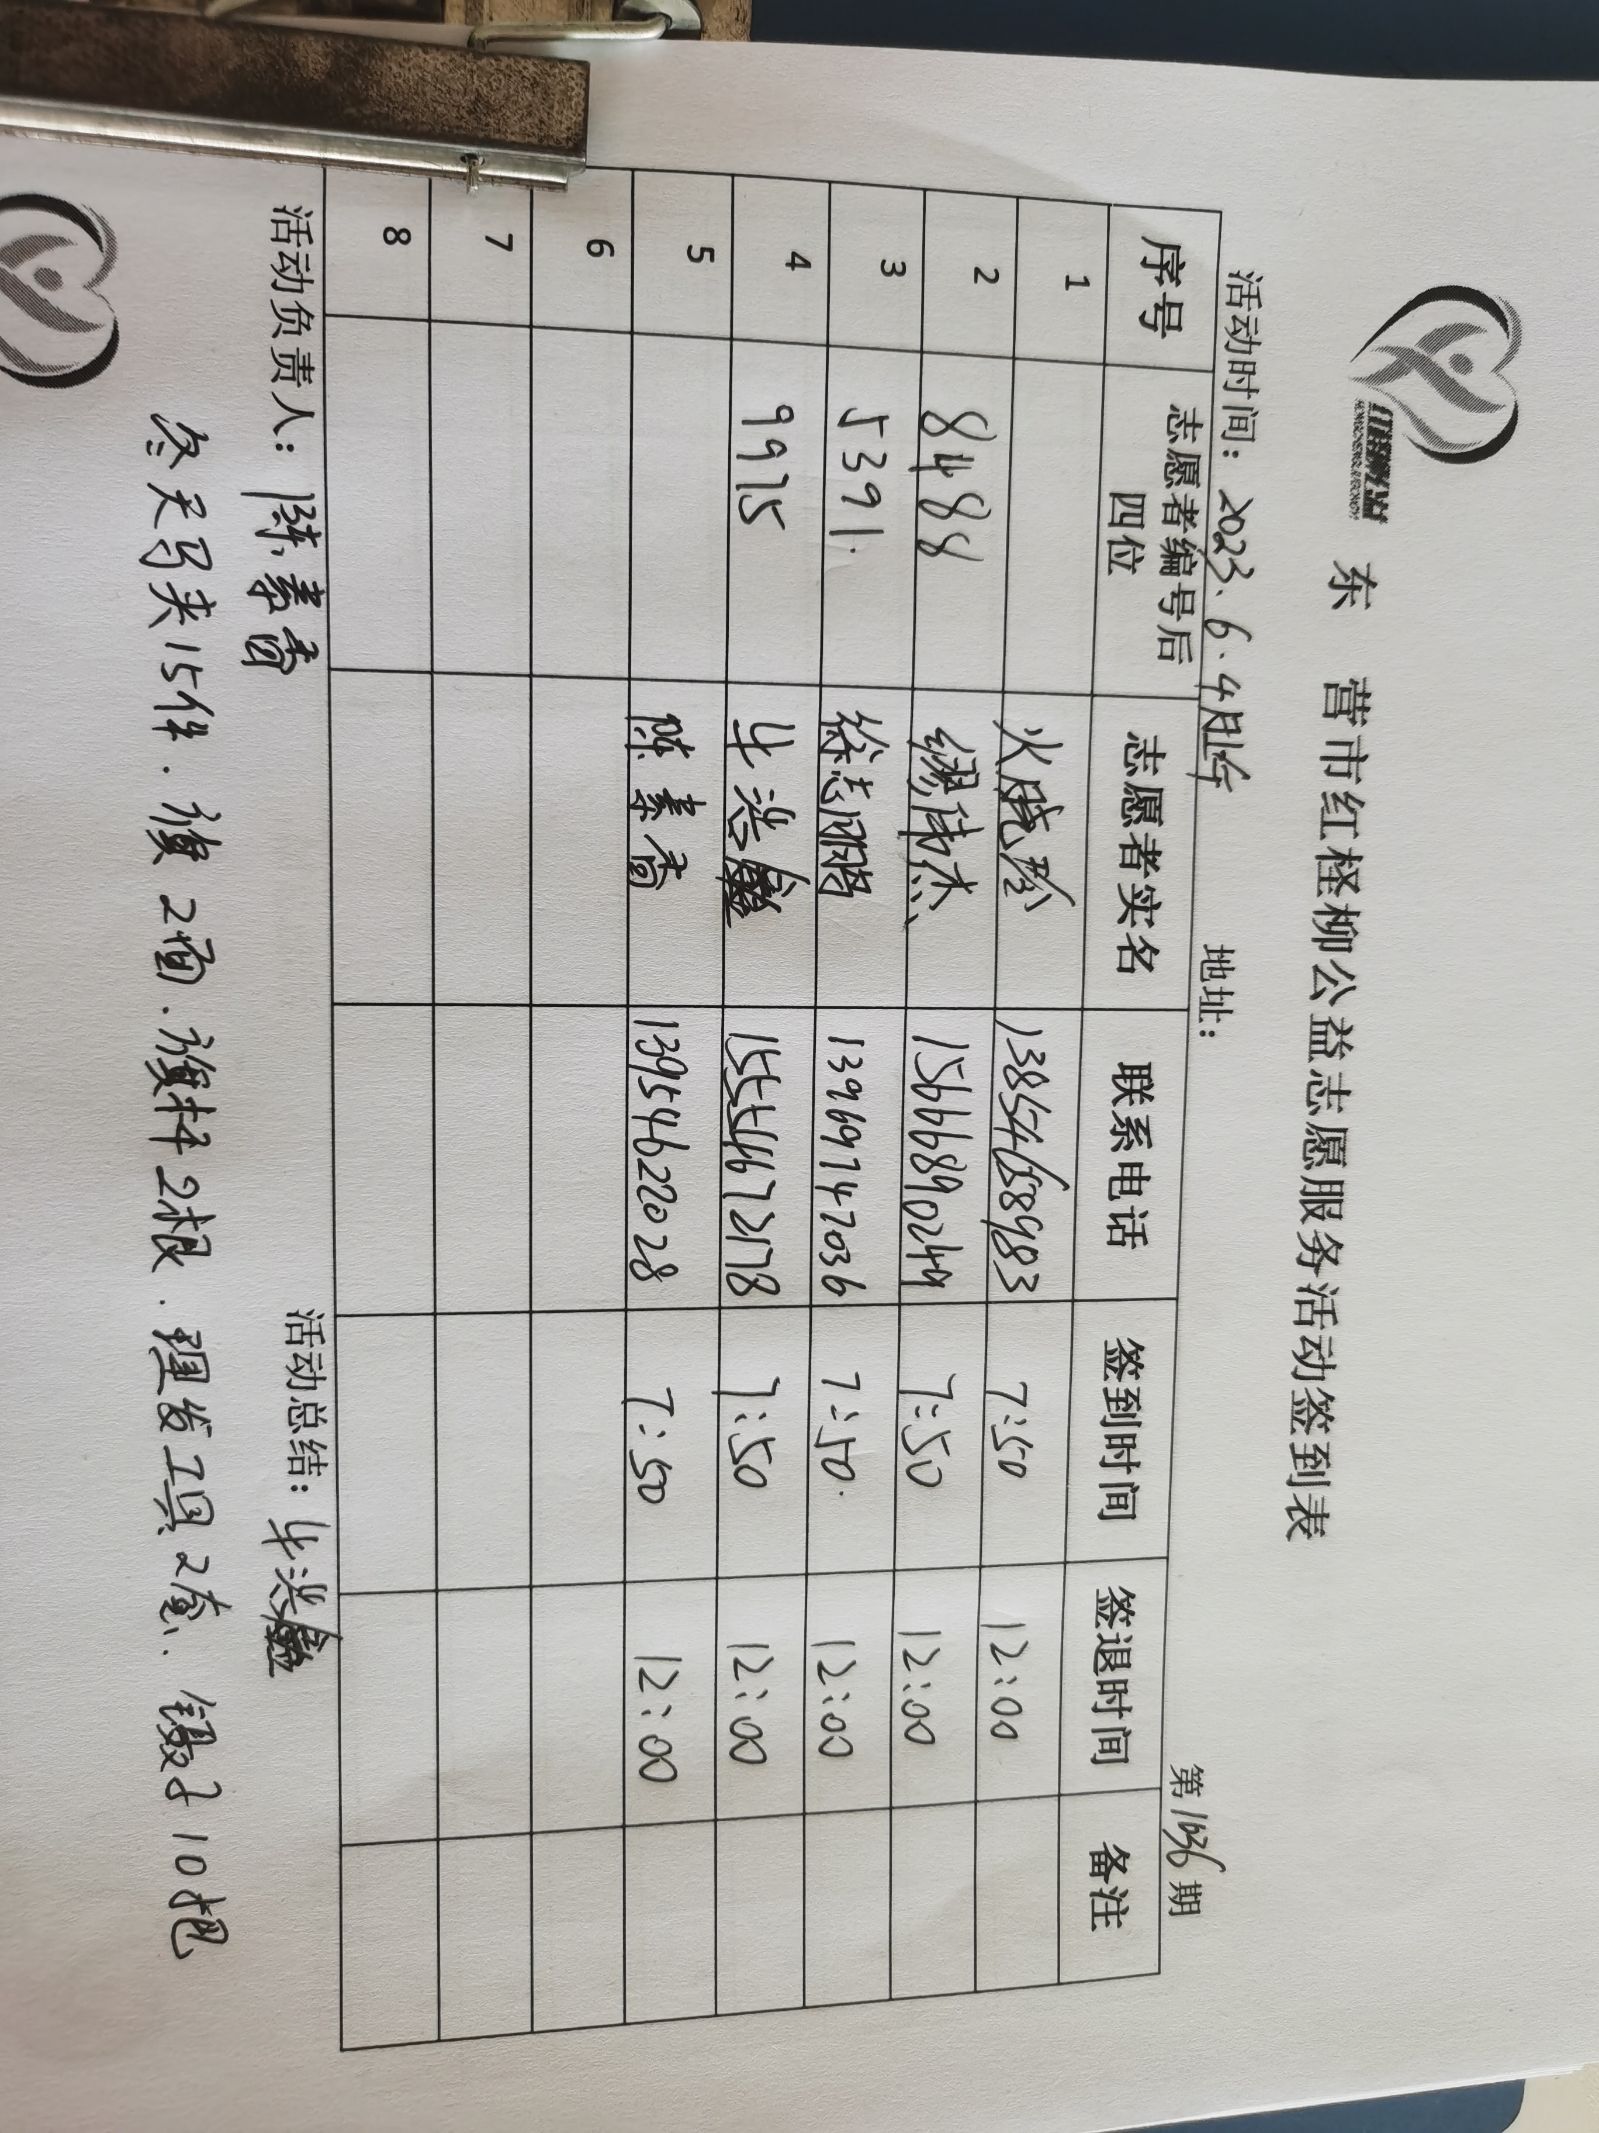 红柽柳公益
东 营市红柽柳公益志愿服务活动签到表
活动时间：2023.6.4 地址： 第1036期
序号 志愿者编号后四位 志愿者实名 联系电话 签到时间 签退时间 备注
1 火晓玲 13854658983 7:50 12:00
2 8488 缪伟杰 15666890249 7:50 12:00
3 5391. 徐志鹏 13969747036 7:50. 12:00
4 9975 牛浩 15554672178 7:50 12:00
5 陈素香 13954622028 7:50 12:00
6
7
8
活动负责人：陈素香 活动总结：牛浩
冬天马夹15件.旗2面.旗杆2根.理发工具2套、镊子10把